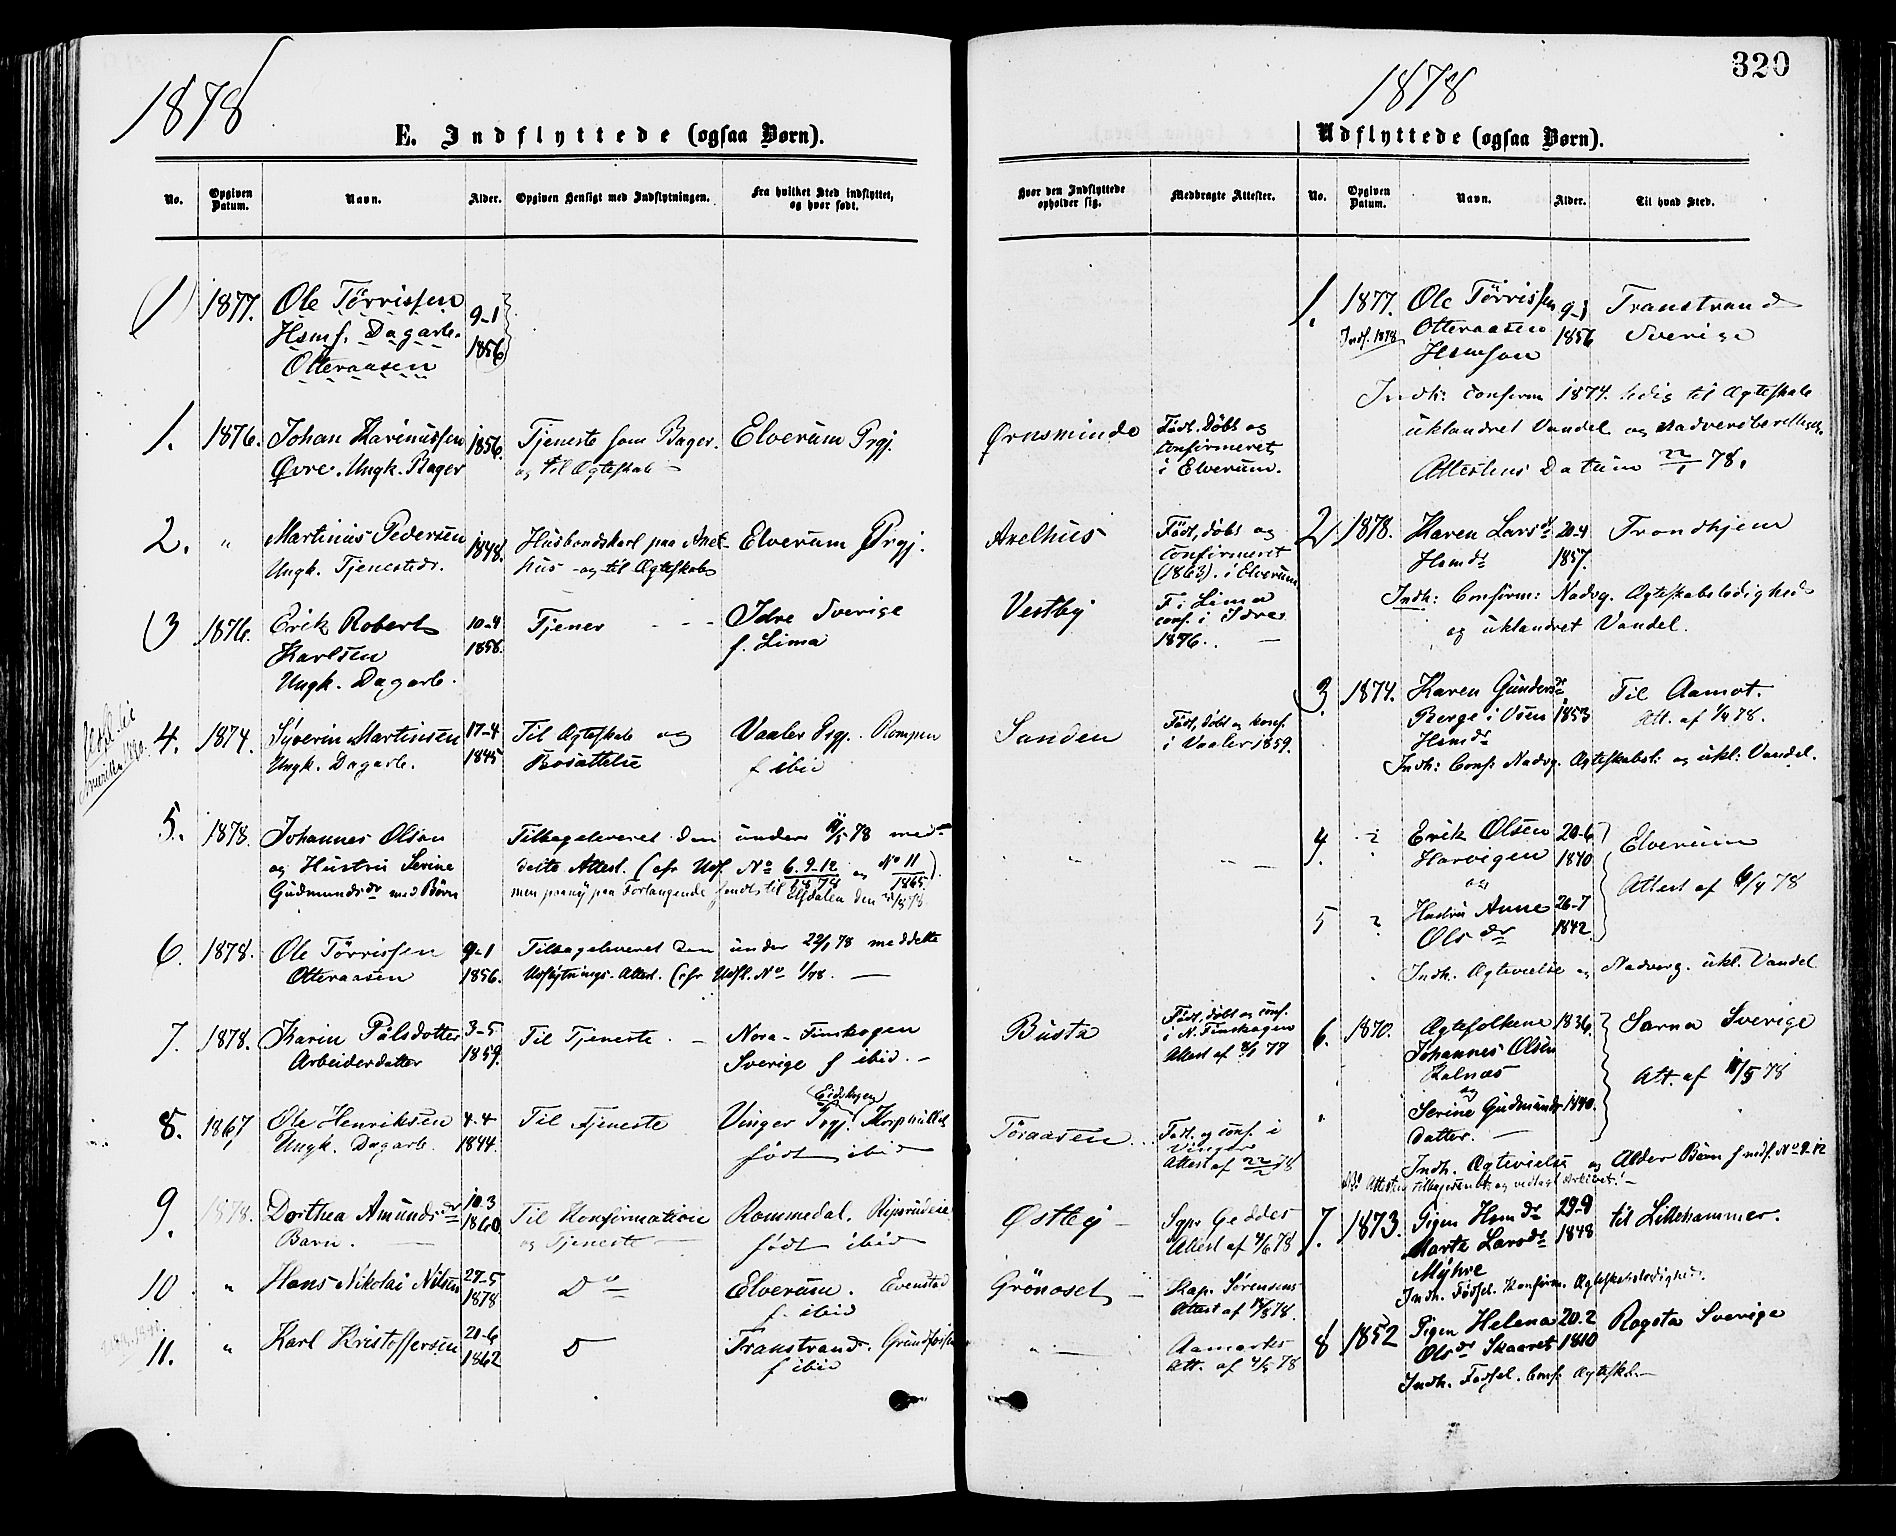 1878
E. Indflyttede (ogsaa Børn).
No. Opgiven Datum. Navn. Alder. Opgiven Hensigt med Indflytningen. Fra hvilket Sted indflyttet, og hvor født.
(1) 1877. Ole Tørrissen 9-1
Hsmf. Dagarb. 1856
Otteraasen
1. 1876. Johan Karinussen 1856. Tjeneste som Bager. Elverum Prgj.
Øvre. Ungk. Bager og til Ægteskab
2. " Martinius Pedersen 1848. Husbondskarl paa Axel- Elverum Prgj.
Ungk. Tjenestedr. hus - og til Ægteskab
3 1876. Erik Robert 10-4 Tjener Idre Sverige
Karlsen 1858. f. Lima
Ungk. Dagarb.
4. 1874. Syverin Martinsen 17-4 Til Ægteskab og Vaaler Prgj. Rompen
Ungk. Dagarb. 1845 Bosættelse f ibid
5. 1878. Johannes Olsen Tilbageleveret den under 11/5 78 med-
og Hustru Serine delte Attest. (cfr Udf. No 6.9-12/1878 og No 11/1865).
Gudmundsdr med Børn men paany paa Forlangende sendt til Elfdalen den
6. 1878. Ole Tørrissen 9-1 Tilbageleveret den under 22/1 78 meddelte
Otteraasen 1856. Udflytnings-Attest. (cfr Udfl. No 1/78.
7. 1878. Karin Pålsdotter 3-5 Til Tjeneste. Nora-Finskogen
Arbeiderdatter 1859. Sverige f ibid.
8. 1867 Ole Henriksen 4-4 Til Tjeneste Vinger Prgj. Eidskogen
Ungk. Dagarb. 1844. født ibid
9. 1878. Dorthea Amundsdr 10-3 Til Konfirmation Rommedal.
Barn. 1860. og Tjeneste født ibid
10 " Hans Nikolai Nilsen 27-5 Do Elverum. Evenstad
1878 f. ibid
11. " Karl Kristoffersen 20-6 D Transtrand.
1862 f ibid
320
1878
Udflyttede (ogsaa Børn).
Hvor den Indflyttede opholder sig. Medbragte Attester. No. Opgiven Datum. Navn. Alder. Til hvad Sted.
Ørnsminde Født. Døbt og
confirmeret
i Elverum.
Axelhus Født, døbt og
confirmeret
(1863). i Elverum
Vestby F. i Lima
conf. i Idre
1876.
Sanden Født, døbt og konf.
i Vaaler 1859.
Busta Født, døbt og conf.
i N. Finskogen
Attest af 77
Toraasen Født. og conf. i
Vinger
Attest af 78
Østby Sgpr Geddes
Attest af 4/6 78
Grönoset Kap. Sørensens
Attest af 78.
Aamarks
Att. af 78
1. 1877. Ole Tørrissen 9-1 Transtrand
Indf. 1878 Otteraasen 1856 Sverige
Hsmson
Indh: Confirm 1874. ledig til Ægteskab
uklandret Vandel og Nadverdbe
Attestens Datum 22/1 78.
2 1878. Karen Larsdr 20-4 Trondhjem
Hsmdr 1857.
Indh: Confirm: Nadvg. Ægteskabsledighed
og uklandret Vandel.
3. 1874. Karen Gundersdr Til Aamot.
Berge i Osen 1853 Att. af 78.
Hsmdr
Indh: Conf: Nadvg. Ægteskabsl: og ukl: Vandel.
4 ? Erik Olsen 20-6 Elverum
Harvigen 1840
og Attest af 6/4 78
5 ? Hustru Anne 26-7
Olsdr 1842.
Indh. Ægtevielse og Nadverg. ukl. Vandel
6. 1870. Ægtefolkene 1836 Särna Sverige
Johannes Olsen
Kalnæs Att. af 11/5 78
og
Serine Gudmunds- 1840.
datter.
Indh. Ægtevielse og Alder Børn f indf. No 9-12
7. 1873. Pigen Hsmdr 29-9 til Lillehammer.
Marte Larsdr 1848
Myhre
Indh. Fødsel. Konfirm. Ægteskabsledighed.
8 1852 Pigen Helena 20-2 Rogsta Sverige
Olsdr Skaaret 1810
Indh. Fødsel. Conf. Ægtesk.